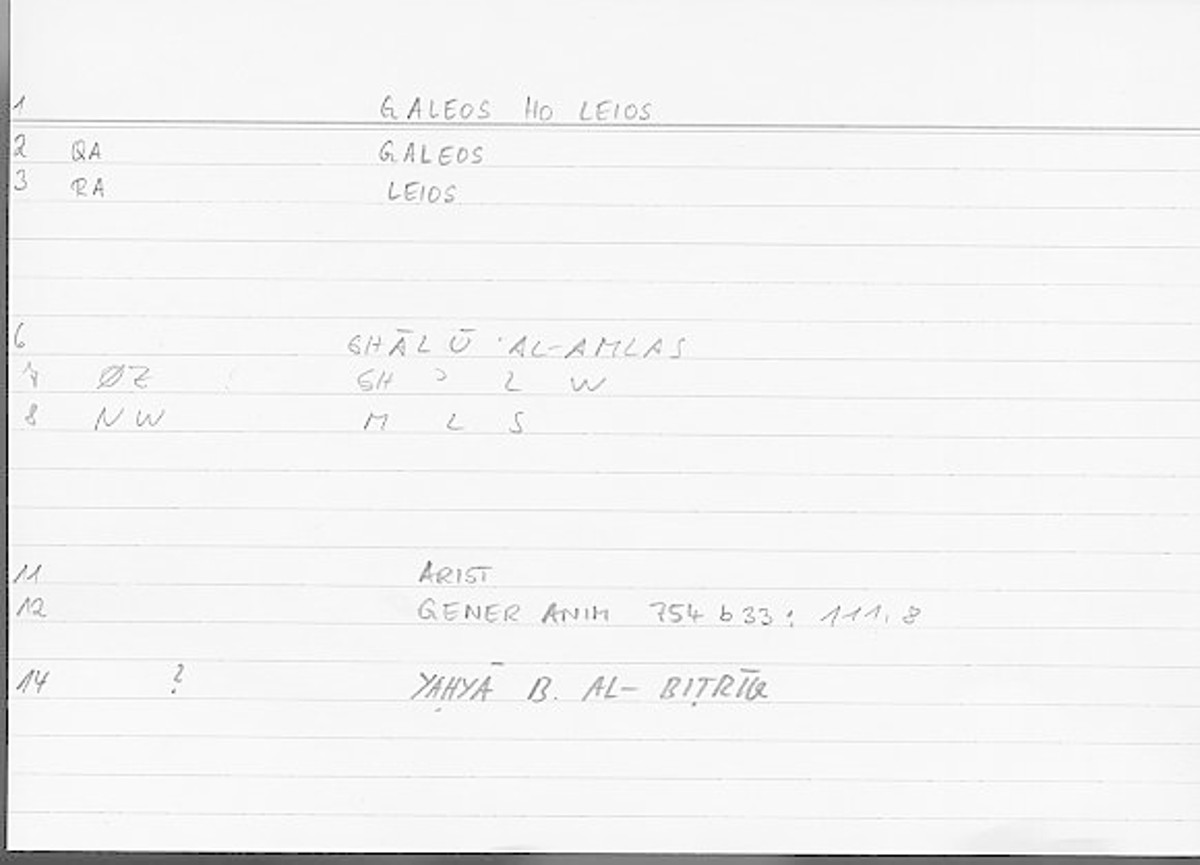 1 GALEOS HO LEIOS
2 QA GALEOS
3 RA LEIOS
6 GHĀLŪ 'AL-AMLAS
7 ØZ GH ʾ L W
8 NW M L S
11 ARIST
12 GENER ANIM 754 b 33 : 111,8
14 ? YAḤYĀ B. AL-BIṬRĪQ